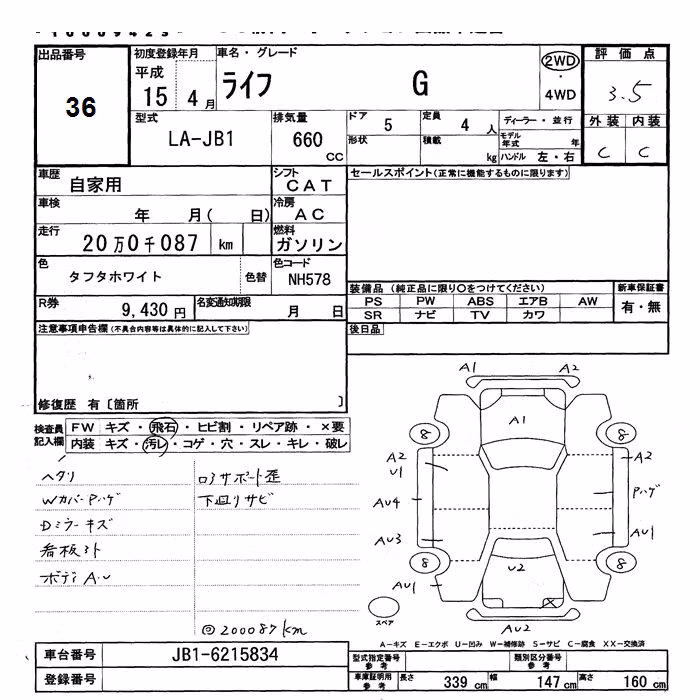 出品番号
36
初度登録年月
平成
15 4 月
車名・グレード
ライフ G
2WD
・
4WD
評価点
3.5
外装 内装
C C
型式
LA-JB1
排気量
660 cc
ドア 5
定員 4 人
形状
積載 kg
ディーラー・並行
モデル年式 年
ハンドル 左・右
車歴
自家用
シフト
CAT
セールスポイント(正常に機能するものに限ります)
車検
年 月( 日)
冷房
AC
走行
20万0千087 km
燃料
ガソリン
色
タフタホワイト
色替
色コード
NH578
装備品(純正品に限り〇をつけてください)
新車保証書
PS PW ABS エアB AW
有・無
SR ナビ TV カワ
R券
9,430 円
名変通知期限
月 日
後日品
注意事項申告欄(不具合内容等は具体的に記入して下さい)
修復歴 有〔箇所 〕
検査員記入欄
FW キズ・飛石・ヒビ割・リペア跡・×要
内装 キズ・汚レ・コゲ・穴・スレ・キレ・破レ
ヘタリ
Wカバーハゲ
Dミラーキズ
看板多ト
ボディAU
下廻リサビ
200087km
A1 A2
A1
8 8
A2
U1
A2
AU4
Pハゲ
AU3
AU1
8 8
U2
AU1
X
スペア
AU2
A-キズ E-エクボ U-凹み W-補修跡 S-サビ C-腐食 XX-交換済
車台番号
JB1-6215834
登録番号
型式指定番号 参考
類別区分番号 参考
車庫証明用 参考
長さ 339 cm
幅 147 cm
高さ 160 cm